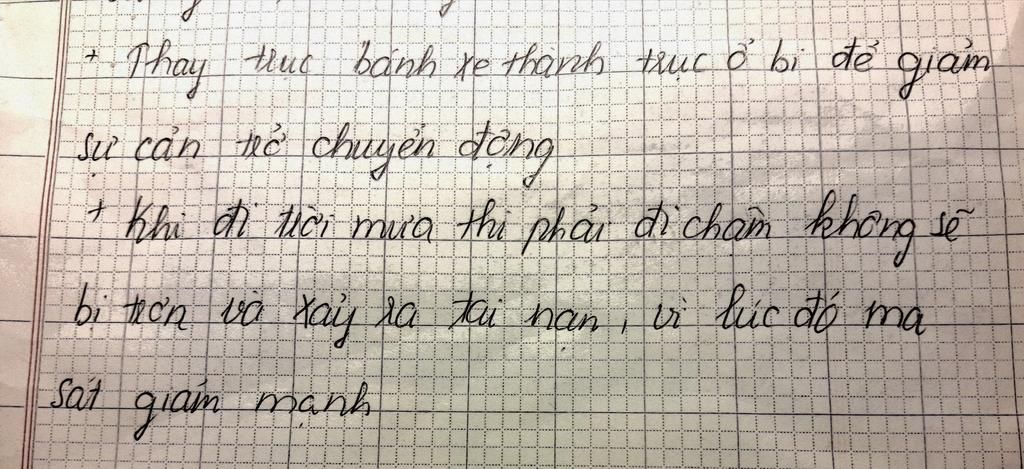 + Thay trục bánh xe thành trục ổ bi để giảm
sự cản trở chuyển động
+ Khi đi trời mưa thì phải đi chậm không sẽ
bị trơn và xảy ra tai nạn, vì lúc đó ma
sát giảm mạnh